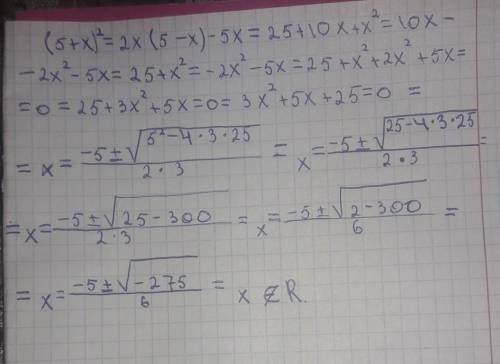 (5+x)²=2x(5-x)-5x=25+10x+x²=10x-
-2x²-5x=25+x²=-2x²-5x=25+x²+2x²+5x=
=0=25+3x²+5x=0=3x²+5x+25=0=
=x=(-5±√(5²-4·3·25))/(2·3)=x=(-5±√(25-4·3·25))/(2·3)=
=x=(-5±√(25-300))/(2·3)=x=(-5±√(2-300))/6=
=x=(-5±√(-275))/6=x∉R.